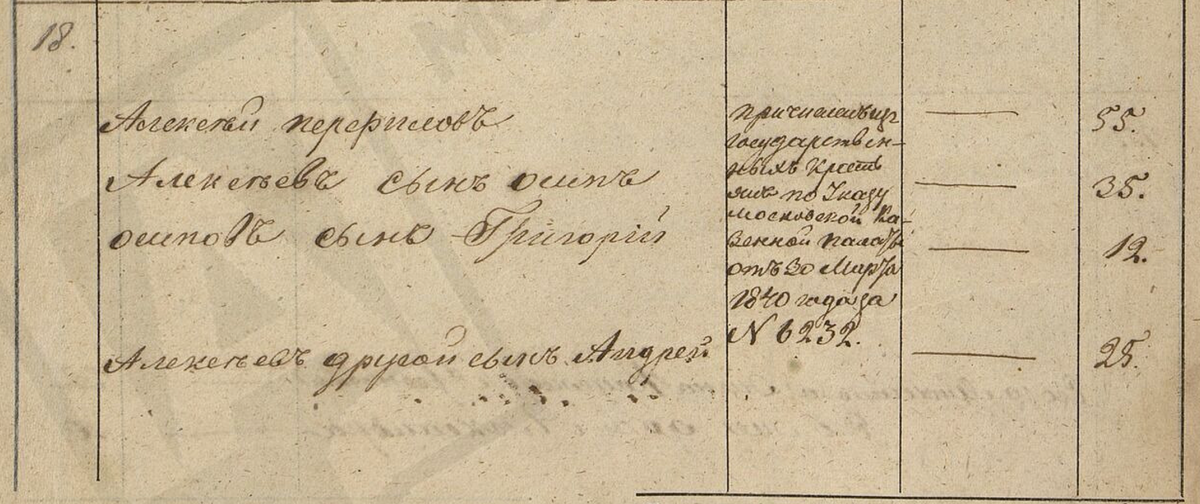 18.
Алексѣй перфиловъ — 55.
Алексѣевъ сынъ осипъ — 35.
осиповъ сынъ Григорій — 12.
Алексѣевъ другой сынъ Андрей — 25.
государствен-
ныхъ крестъ
янъ по Указу
Московской Ка-
зенной палаты
отъ 30 Марта
1840 года за
N 6232.